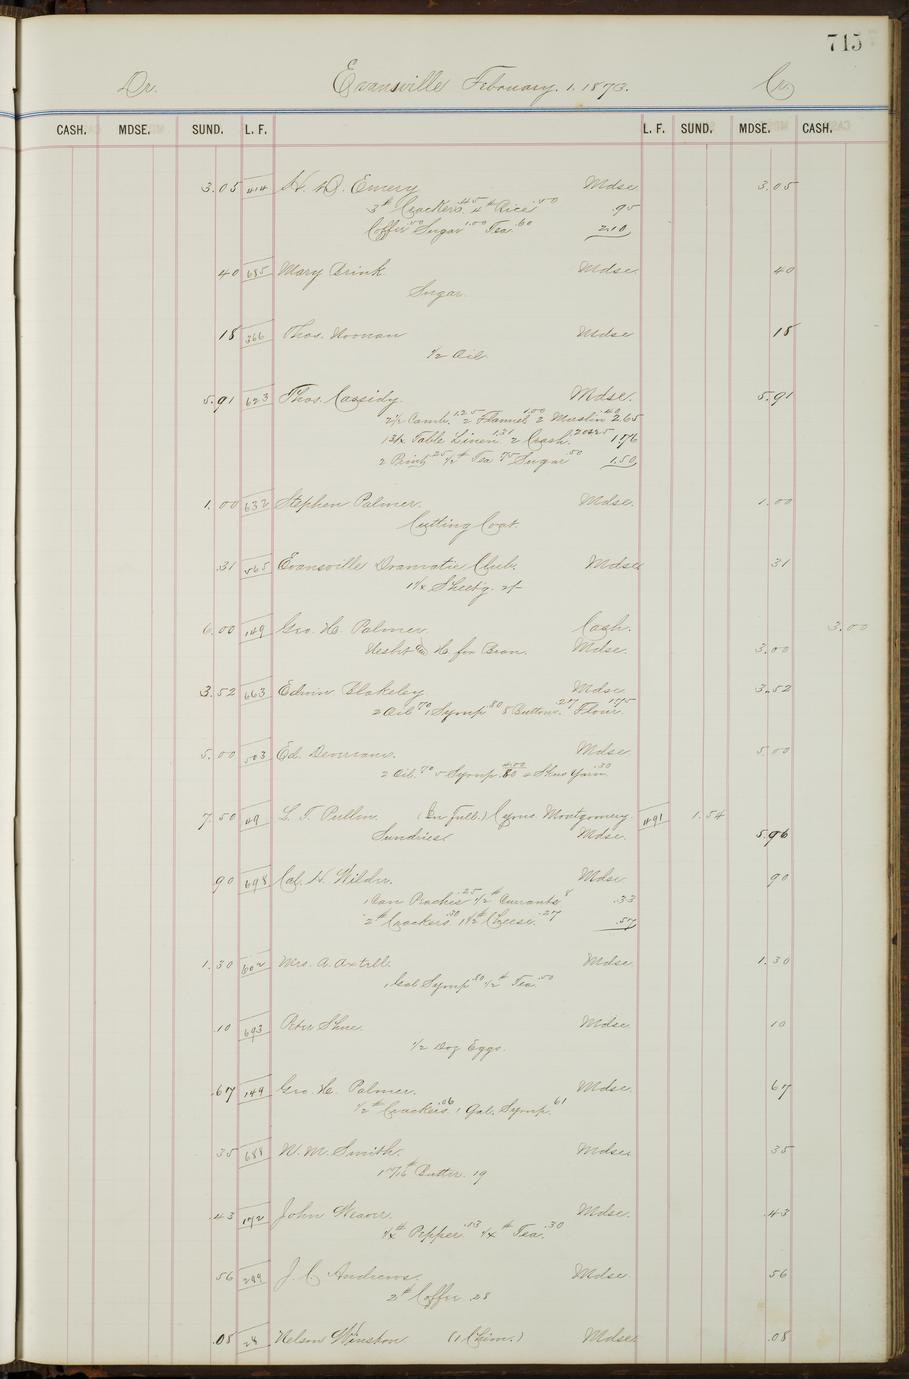 715
Dr. Evansville February. 1. 1873. Cr
CASH. MDSE. SUND. L. F. L. F. SUND. MDSE. CASH.
3.05 414 H. D. Emery Mdse 3.05
3# Crackers .45 4# Rice .50 .95
Coffee .50 Sugar 1.00 Tea .60 2.10
40 685 Mary Brink Mdse 40
Sugar.
18 366 Thos. Noonan Mdse 18
1/2 Oil
5.91 623 Thos. Cassidy. Mdse. 5.91
2 1/2 Camb. 1.25 2 Flannel 1.00 2 Muslin .40 2.65
Table Linen 1.31 2 Crash. 1.76
2 Print .25 1/2# Tea .75 Sugar .50 1.50
1.00 632 Stephen Palmer. Mdse. 1.00
Cutting Coat.
.31 565 Evansville Dramatic Club. Mdse 31
Sheet'g.
6.00 149 Geo. H. Palmer. Cash. 3.00
H. for Bran. Mdse. 3.00
3.52 663 Edwin Blakeley Mdse 3.52
2 Oil .70 1 Syrup .80 8 Buttons .27 Flour 1.75
5.00 503 Ed. Mdse 5.00
2 Oil. .70 Syrup. Yarn .30
7.50 49 L. T. Pullen. (In full.) Cyrus Montgomery. 491 1.54
Sundries Mdse. 5.96
90 698 Cal. H. Wilder. Mdse 90
1 Can Peaches .25 1/2# Currants 8 .33
2# Crackers .30 1 1/2# Cheese .27 .57
1.30 602 Mrs. A. Axtell. Mdse 1.30
1 Gal Syrup .80 1/2# Tea .50
.10 693 Peter Shue. Mdse 10
1/2 Doz Eggs.
.67 149 Geo. H. Palmer. Mdse. 67
1/2# Crackers .06 1 Gal. Syrup. 61
35 688 W. M. Smith. Mdse 35
Butter. 19
.43 172 John Weaver. Mdse. .43
1/4# Pepper .13 1/4# Tea. .30
56 299 J. C. Andrews. Mdse 56
2# Coffee .28
.08 28 Nelson Winston (1 Chim.) Mdse .08